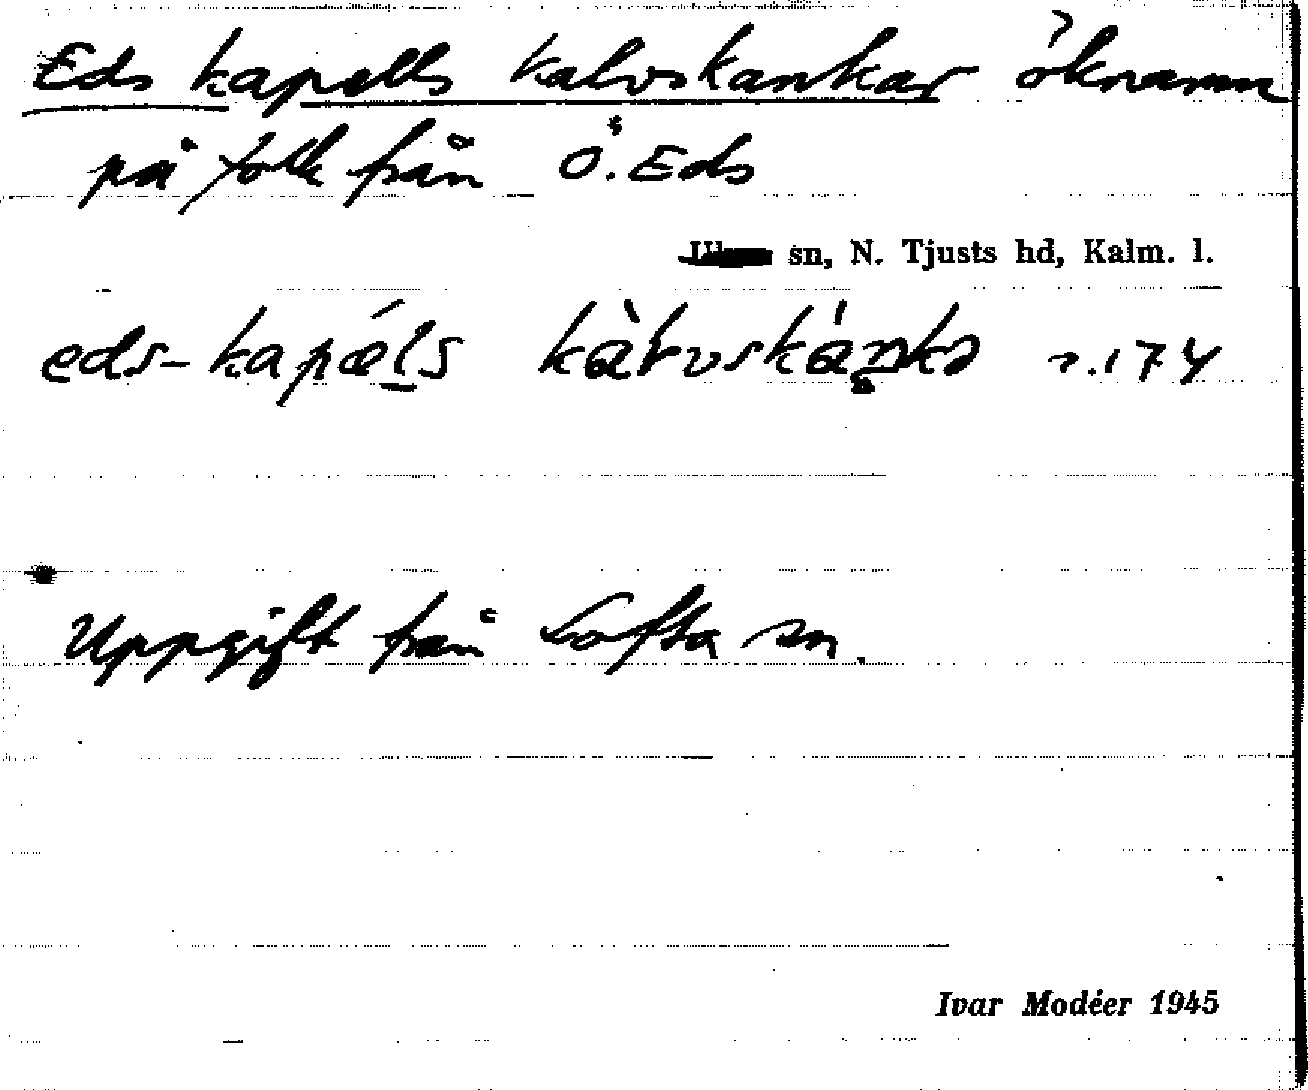 Eds kapells kalvskankar öknamn
på folk från Ö. Eds
sn, N. Tjusts hd, Kalm. l.
eds-kapǽls
Uppgift från Lofta sn.
Ivar Modéer 1945